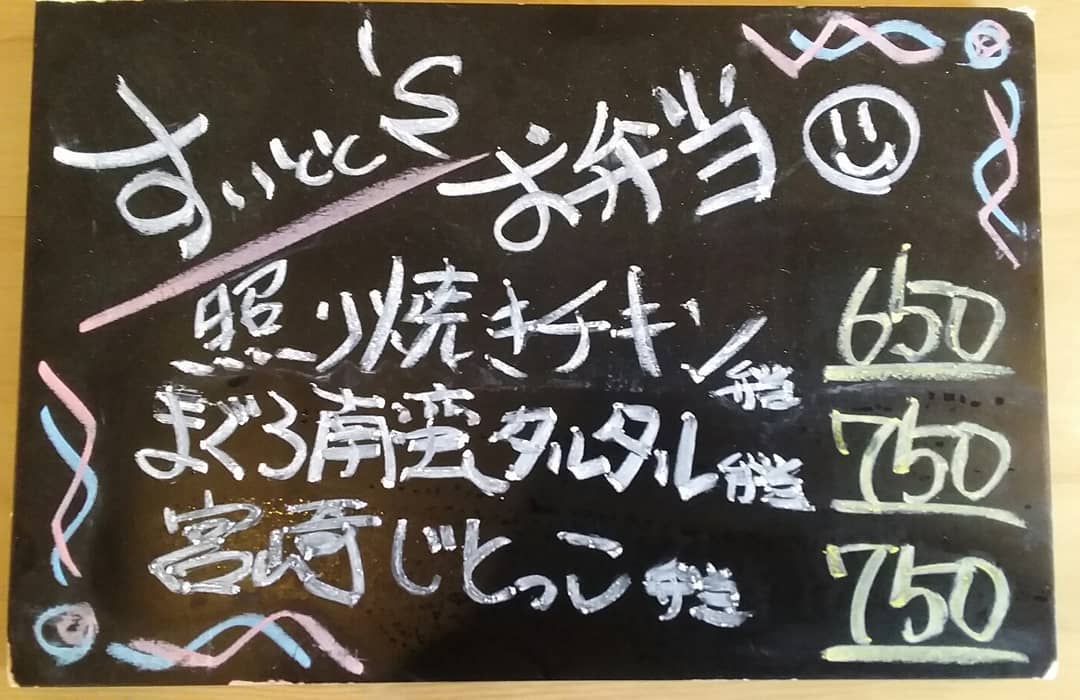 すいとと's お弁当
照り焼きチキン弁当 650
まぐろ南蛮タルタル弁当 750
宮崎じとっこ弁当 750